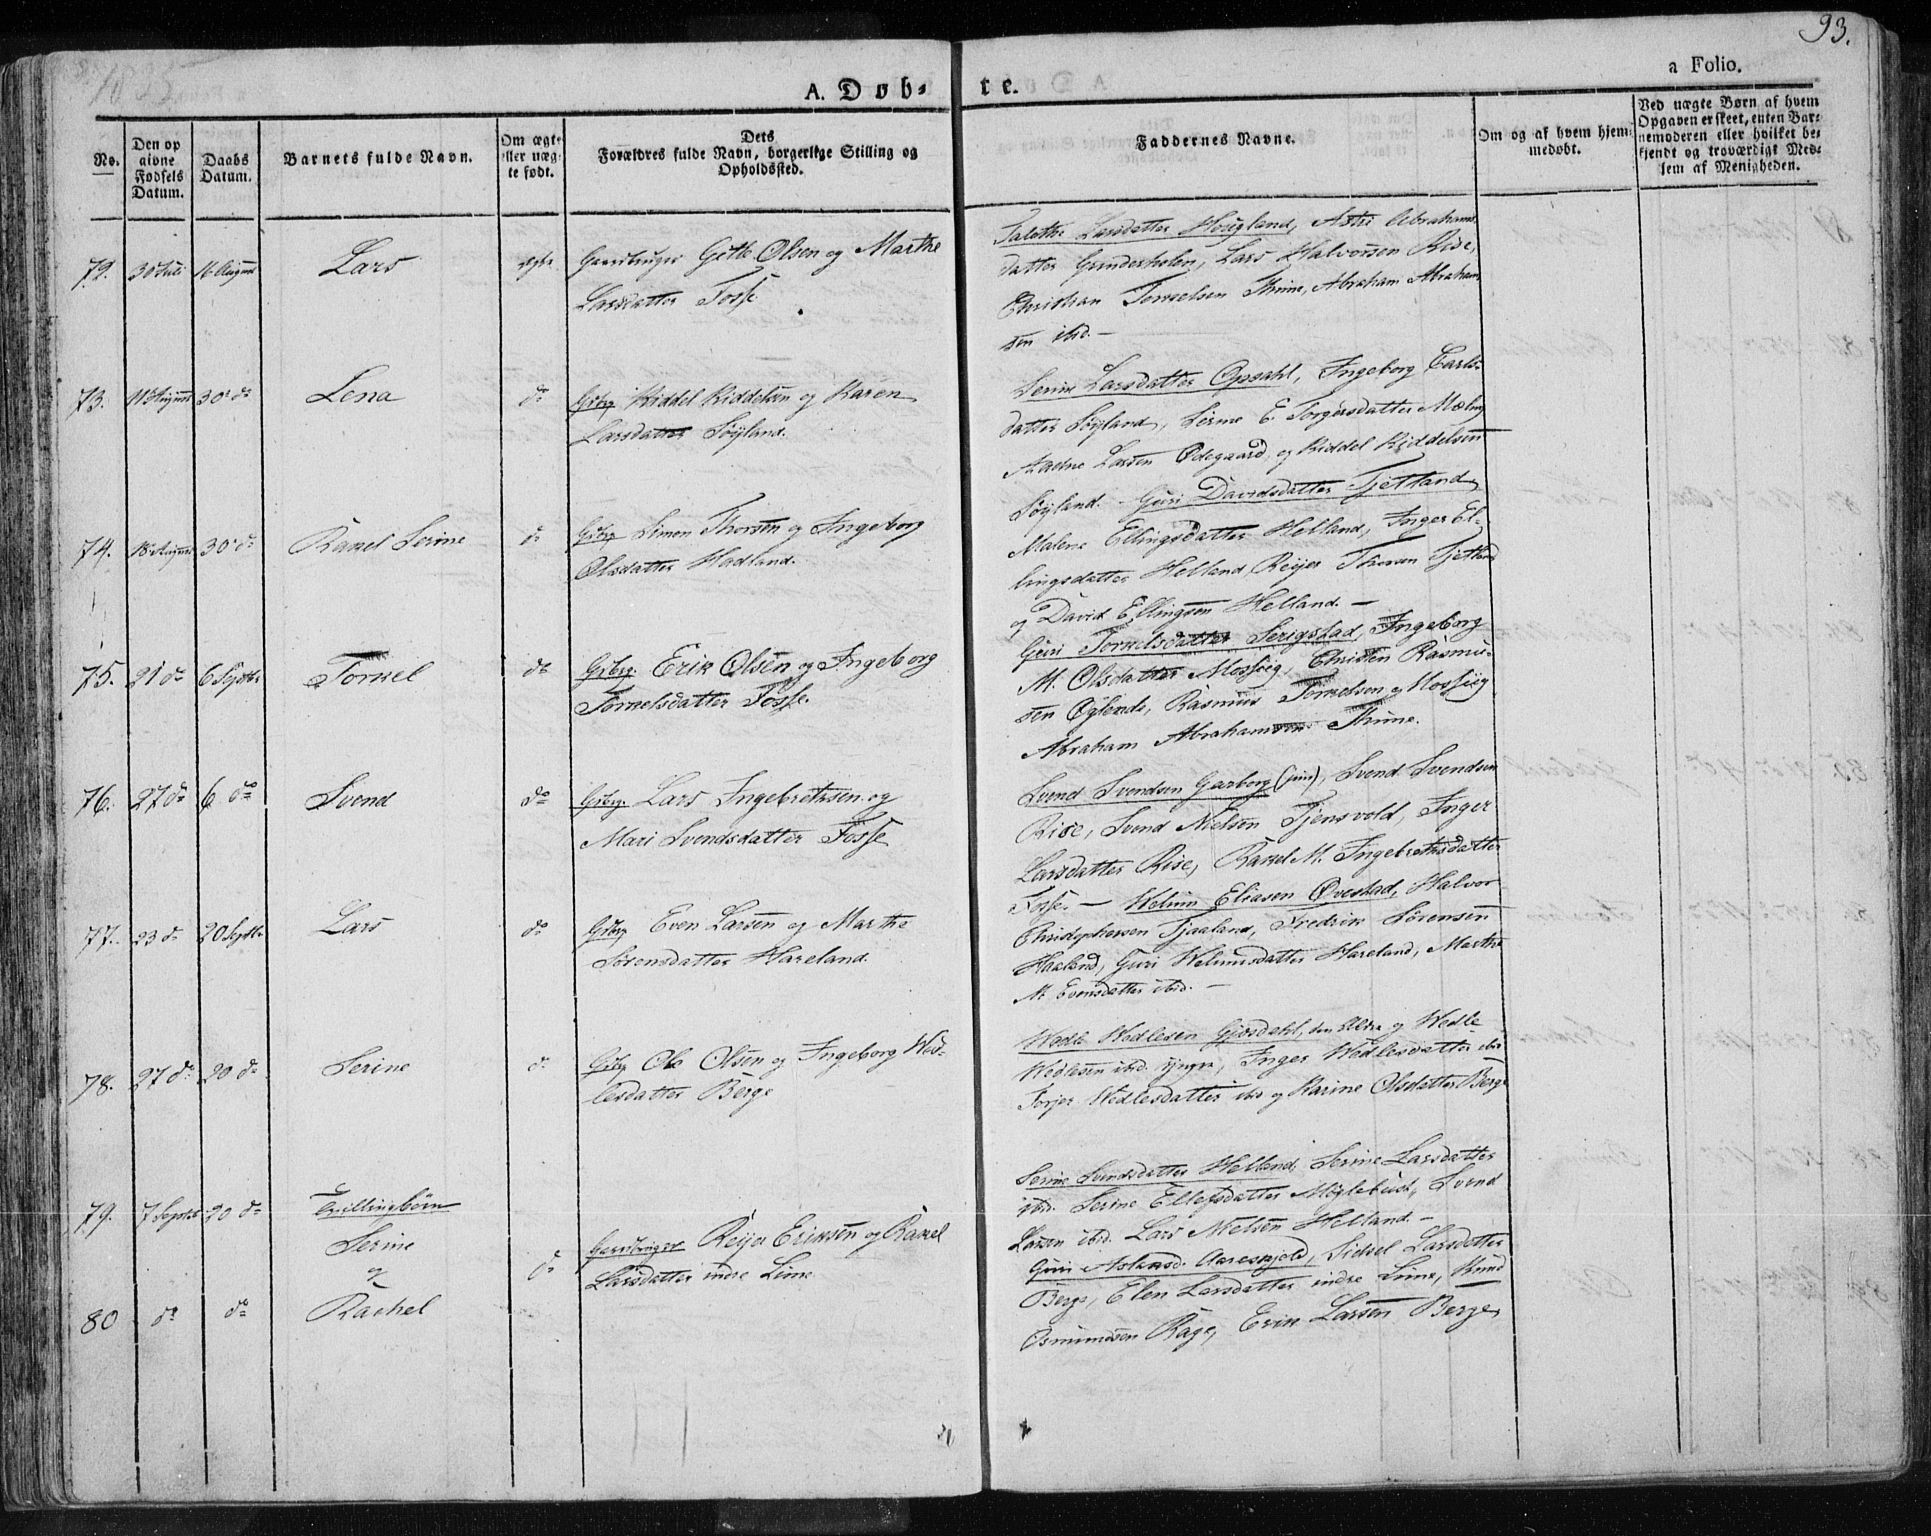 93.
1835
a Folio.
A. Døb-
te.
No.
Den op
givne
Fødsels
Datum.
Daabs
Datum.
Barnets fulde Navn.
Om ægte
eller uæg-
te født.
Dets
Forældres fulde Navn, borgerlige Stilling og
Opholdssted.
Faddernes Navne.
Om og af hvem hjem-
medøbt.
Ved uægte Børn af hvem
Opgaven er skeet, enten Bar-
nemoderen eller hvilket be-
kjendt og troværdigt Med-
lem af Menigheden.
72. 30 Juli 16 August Lars ægte Gaardbruger Gitle Olsen og Marthe
Larsdatter Fosse
Larsdatter Hougland, Astri Abrahams
datter Grunderholen, Lars Halvorsen Rise,
Christian Tormelsen Thime, Abraham Abraham
sen ibd. —
73. 11 August 30 do Lena do Grbrg Kiddel Kiddelsen og Karen
Larsdatter Søyland.
Serine Larsdatter Opsahl, Ingeborg Carls-
datter Søyland, Serine E. Torgersdatter Mæling
Aadne Larsen Ødegaard, og Kiddel Kiddelsen
Søyland. -
74. 18 August 30 do Raxel Serine do Grbrg Simon Thorsen og Ingeborg
Olsdatter Hadland.
Guri Davidsdatter Tjetland,
Malene Ellingsdatter Helland, Inger El-
lingsdatter Helland, Reijer Thorsen Tjetland
og David Ellingsen Helland. —
75. 21 do 6 Septbr Torkel do Grbrg. Erik Olsen og Ingeborg
Torkelsdatter Fosse.
Guri Torkelsdatter Serigstad, Ingeborg
M. Olsdatter Mossiig, Christen Rasmu-
sen Øglende, Rasmus Torkelsen Mossiig
Abraham Abrahamsen Thime.
76. 27 do 6 do Svend do Grbrg. Lars Ingebretsen og
Mari Svendsdatter Fosse
Svend Svendsen Garborg (jun), Svend Svendsen
Rise, Svend Nielsen Tjensvold, Inger
Larsdatter Rise, Raxel M. Ingebretsdatter
Fosse. —
77. 23 do 20 Septbr Lars do Grbrg Even Larsen og Marthe
Sørensdatter Hareland.
Welum Eliasen Ovestad, Halvor
Christophersen Tjaaland, Fredrik Sørensen
Haaland, Guri Welumsdatter Hareland, Marthe
M. Evensdatter ibd. —
78. 27 do 20 do Serine do Grbrg Ole Olsen og Ingeborg Wed-
lesdatter Berge
Wedle Wedlesen Gjesdahl, den Ældre og Wedle
Wedlesen ibd. yngre, Inger Wedlesdatter ibd
Torjer Wedlesdatter ibd og Karine Olsdatter Berge
79. 7 Septbr 20 do Tvillingbørn
Serine
og
do Gaardbruger Reijer Eriksen og Raxel
Larsdatter indre Lime
Serine Svendsdatter Helland, Serine Larsdatter
ibd. Serine Ellefsdatter Møglebust, Svend
Larsen ibd. Lars Nielsen Helland. —
80 do do Rachel
Guri Aslaksd. Aareskjold, Sidsel Larsdatter
Berge, Elen Larsdatter indre Lime, Knud
Osmundsen Rage, Erik Larsen Berge,